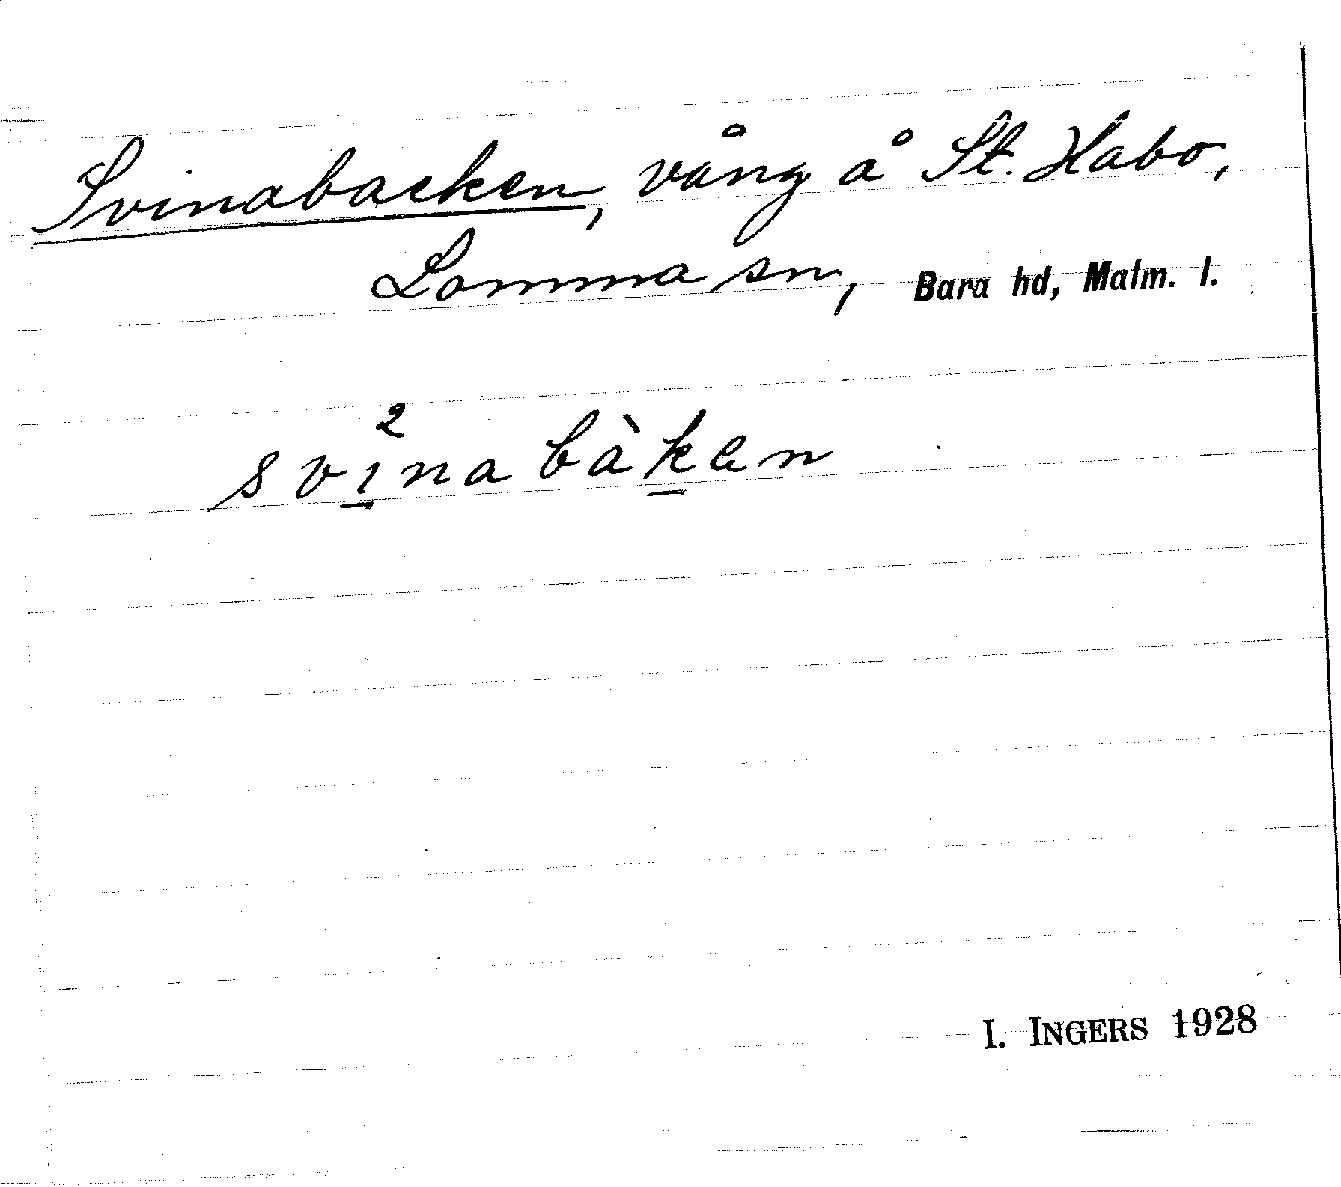 Svinabacken, vång å St. Habo,
Lomma sn, Bara hd, Malm. l.
svı̱²nabàḵen
I. INGERS 1928